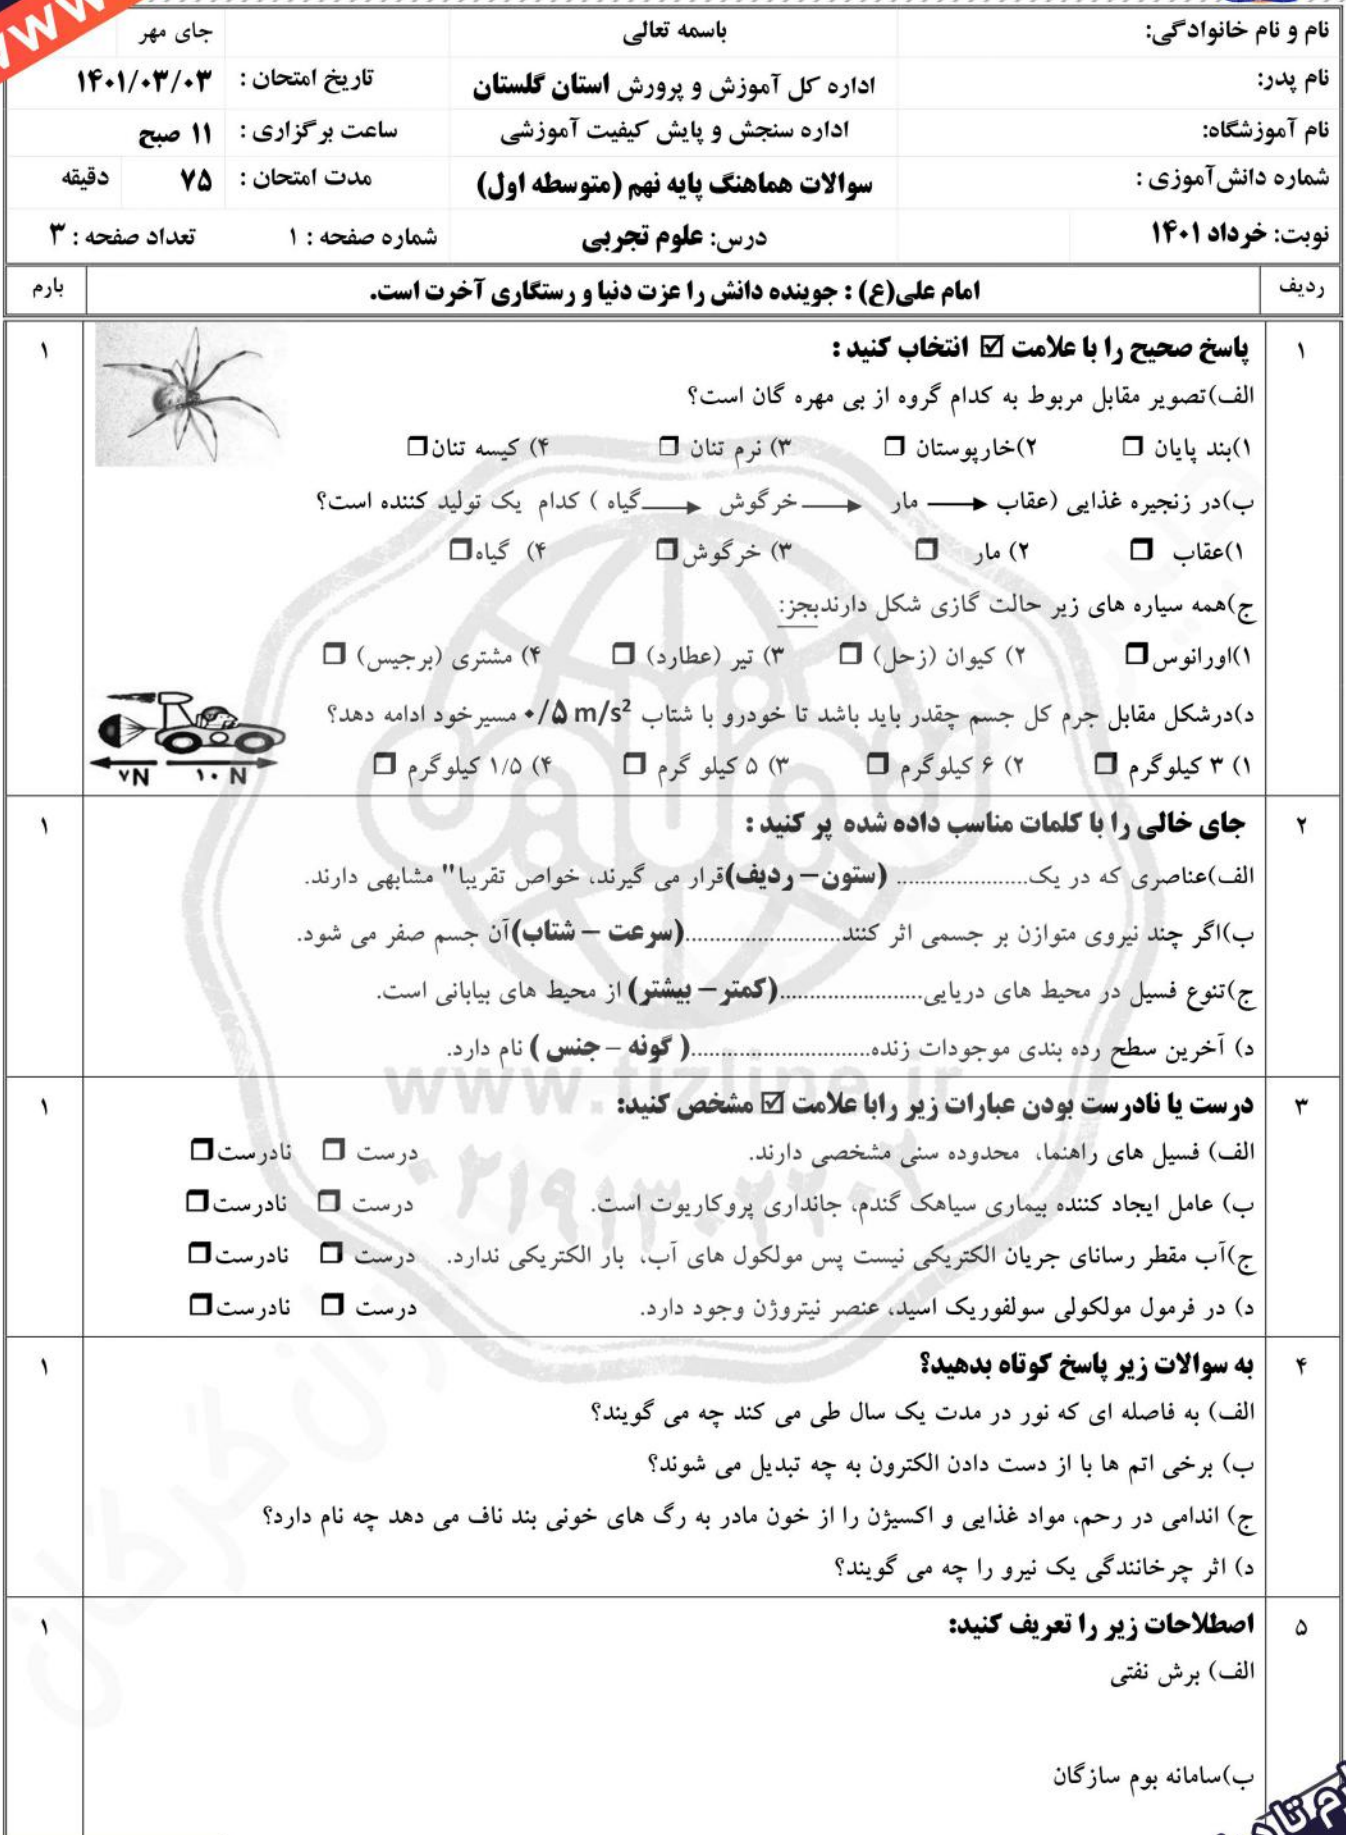 نام و نام خانوادگی: باسمه تعالی جای مهر
نام پدر: اداره کل آموزش و پرورش استان گلستان تاریخ امتحان : ۱۴۰۱/۰۳/۰۳
نام آموزشگاه: اداره سنجش و پایش کیفیت آموزشی ساعت برگزاری : ۱۱ صبح
شماره دانش‌آموزی : سوالات هماهنگ پایه نهم (متوسطه اول) مدت امتحان : ۷۵ دقیقه
نوبت: خرداد ۱۴۰۱ درس: علوم تجربی شماره صفحه : ۱ تعداد صفحه : ۳
ردیف امام علی(ع) : جوینده دانش را عزت دنیا و رستگاری آخرت است. بارم
۱ پاسخ صحیح را با علامت ☑ انتخاب کنید : ۱
الف)تصویر مقابل مربوط به کدام گروه از بی مهره گان است؟
۱)بند پایان ❒ ۲)خارپوستان ❒ ۳) نرم تنان ❒ ۴) کیسه تنان❒
ب)در زنجیره غذایی (عقاب ← مار ← خرگوش ← گیاه ) کدام یک تولید کننده است؟
۱)عقاب ❒ ۲) مار ❒ ۳) خرگوش❒ ۴) گیاه❒
ج)همه سیاره های زیر حالت گازی شکل دارندبجز:
۱)اورانوس❒ ۲) کیوان (زحل) ❒ ۳) تیر (عطارد) ❒ ۴) مشتری (برجیس) ❒
د)درشکل مقابل جرم کل جسم چقدر باید باشد تا خودرو با شتاب ۰/۵ m/s² مسیرخود ادامه دهد؟
۱) ۳ کیلوگرم ❒ ۲) ۶ کیلوگرم ❒ ۳) ۵ کیلو گرم ❒ ۴) ۱/۵ کیلوگرم ❒
۷N ۱۰ N
۲ جای خالی را با کلمات مناسب داده شده پر کنید : ۱
الف)عناصری که در یک..................... (ستون– ردیف)قرار می گیرند، خواص تقریبا" مشابهی دارند.
ب)اگر چند نیروی متوازن بر جسمی اثر کنند.........................(سرعت – شتاب)آن جسم صفر می شود.
ج)تنوع فسیل در محیط های دریایی.......................(کمتر– بیشتر) از محیط های بیابانی است.
د) آخرین سطح رده بندی موجودات زنده............................( گونه – جنس ) نام دارد.
www.tizline.ir
۳ درست یا نادرست بودن عبارات زیر رابا علامت ☑ مشخص کنید: ۱
الف) فسیل های راهنما، محدوده سنی مشخصی دارند. درست ❒ نادرست❒
ب) عامل ایجاد کننده بیماری سیاهک گندم، جانداری پروکاریوت است. درست ❒ نادرست❒
ج)آب مقطر رسانای جریان الکتریکی نیست پس مولکول های آب، بار الکتریکی ندارد. درست ❒ نادرست❒
د) در فرمول مولکولی سولفوریک اسید، عنصر نیتروژن وجود دارد. درست ❒ نادرست❒
۴ به سوالات زیر پاسخ کوتاه بدهید؟ ۱
الف) به فاصله ای که نور در مدت یک سال طی می کند چه می گویند؟
ب) برخی اتم ها با از دست دادن الکترون به چه تبدیل می شوند؟
ج) اندامی در رحم، مواد غذایی و اکسیژن را از خون مادر به رگ های خونی بند ناف می دهد چه نام دارد؟
د) اثر چرخانندگی یک نیرو را چه می گویند؟
۵ اصطلاحات زیر را تعریف کنید: ۱
الف) برش نفتی
ب)سامانه بوم سازگان